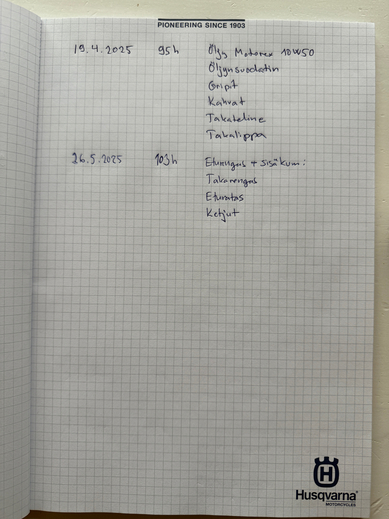 PIONEERING SINCE 1903
19.4.2025 95h Öljy Motorex 10W50
Öljynsuodatin
Gripit
Kahvat
Takateline
Takalippa
26.5.2025 103h Eturengas + sisäkum:
Takarengas
Eturatas
Ketjut
Husqvarna
MOTORCYCLES